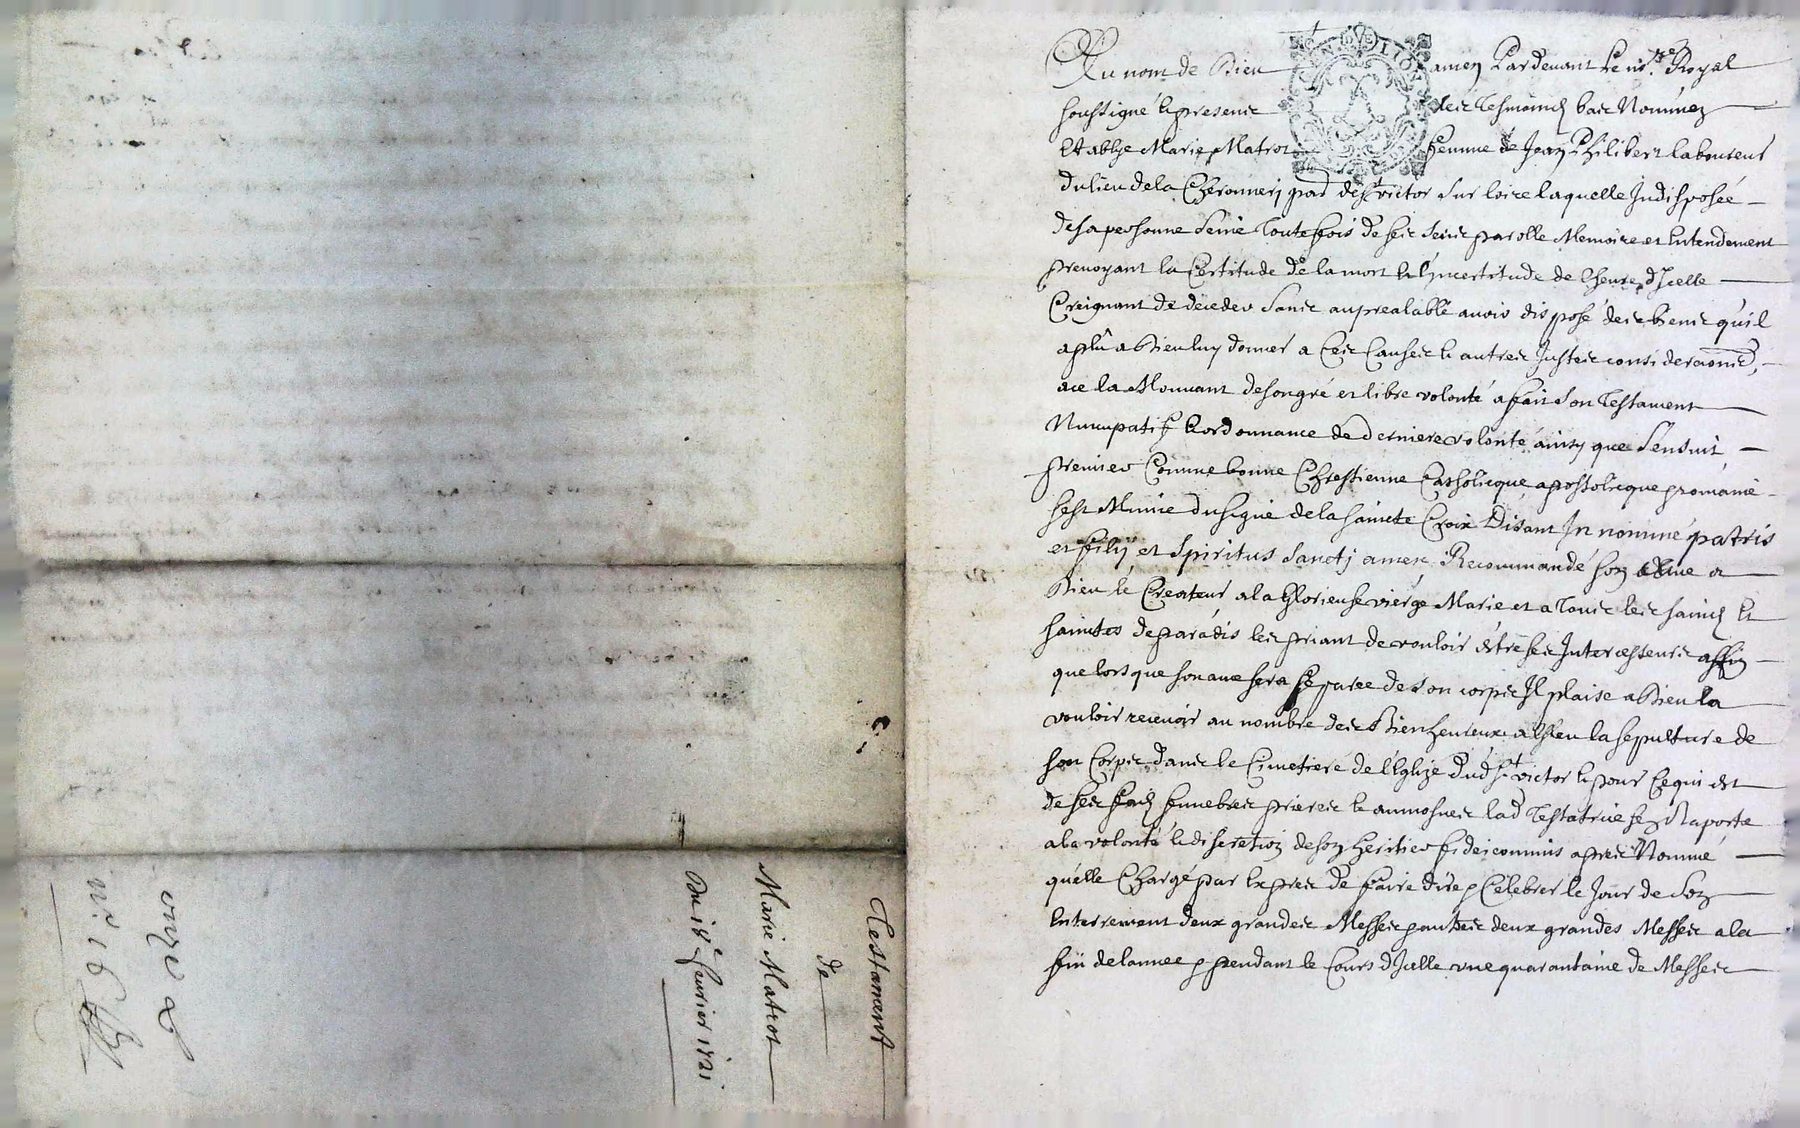 Testament
de
Marie Matrot
Du 18e feurier 1721
onze s
n.o 16
GEN DE LION
Au nom de Dieu amen Pardeuant Le no.re Royal
soussigné & presents les tesmoings bas Nommez
Establye Marie Matrot femme de Jean Philibert laboureur
du lieu de la Cheronnerj par de St victor sur loire laquelle Indisposée
de sa personne seine toutesfois de ses sens parolle Memoire et Entendement
preuoyant la Certitude de la mort & l'Incertitude de l'heure d'Jcelle
Creignant de déceder sans au prealable auoir disposé des biens qu'il
a plû a Dieu luy donner a Ces Causes & autres Justes considerations,
ace la Mouuant de son gré et libre volonté a fait son Testament
Nuncupatif & ordonnance de derniere volonté ainsy que s'ensuit
premier Comme bonne Chrestienne Catholicque apostolicque & romaine
sest Munie du signe de la saincte Croix Disant In nomine patris
et filij et spiritus sanctj amen Recommandé son ame a
Dieu le Createur a la Glorieuse vierge Marie et a Tous les saincts Et
sainctes de paradis les priant de vouloir estre ses Intercesseurs affin
que lors que son ame sera separee de son corps Il plaise a Dieu la
vouloir receuoir au nombre des Bienheureux a Esleu la sepulture de
son Corps dans le Cimetiere de l'Eglize dud St victor & pour Ce qui est
de ses frais funebres prieres & aumosnes lad Testatrice sen Raporte
a la volonté & discretion de son heritier fideicommis apres Nommé
quelle Charge par Expres de faire dire & Celebrer le Jour de son
Enterrement deux grandes Messes & autres deux grandes Messes a la
fin de lannee & pendant le Cours d'Jcelle vne quarantaine de Messes